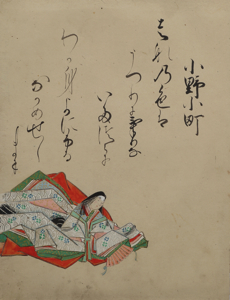 小野小町
はな乃色は
うつりにけりな
いたつらに
わか身よにふる
なかめせし
まに